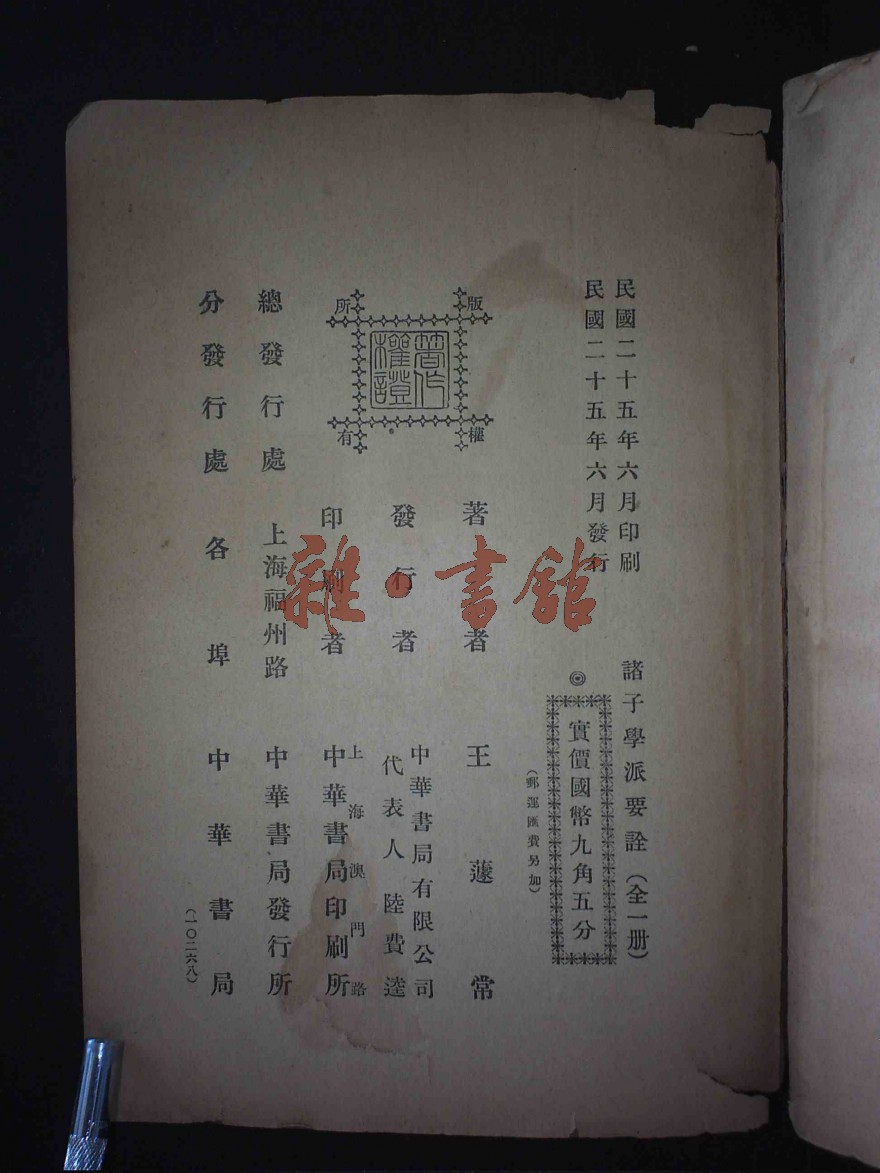 民國二十五年六月印刷
民國二十五年六月發行
諸子學派要詮（全一册）
◎實價國幣九角五分
（郵運匯費另加）
版權所有
著作權證
著者 王蘧常
發行者 中華書局有限公司
代表人 陸費逵
印刷者 上海澳門路
中華書局印刷所
總發行處 上海福州路 中華書局發行所
分發行處 各埠 中華書局
（一〇二六八）
雜·書館